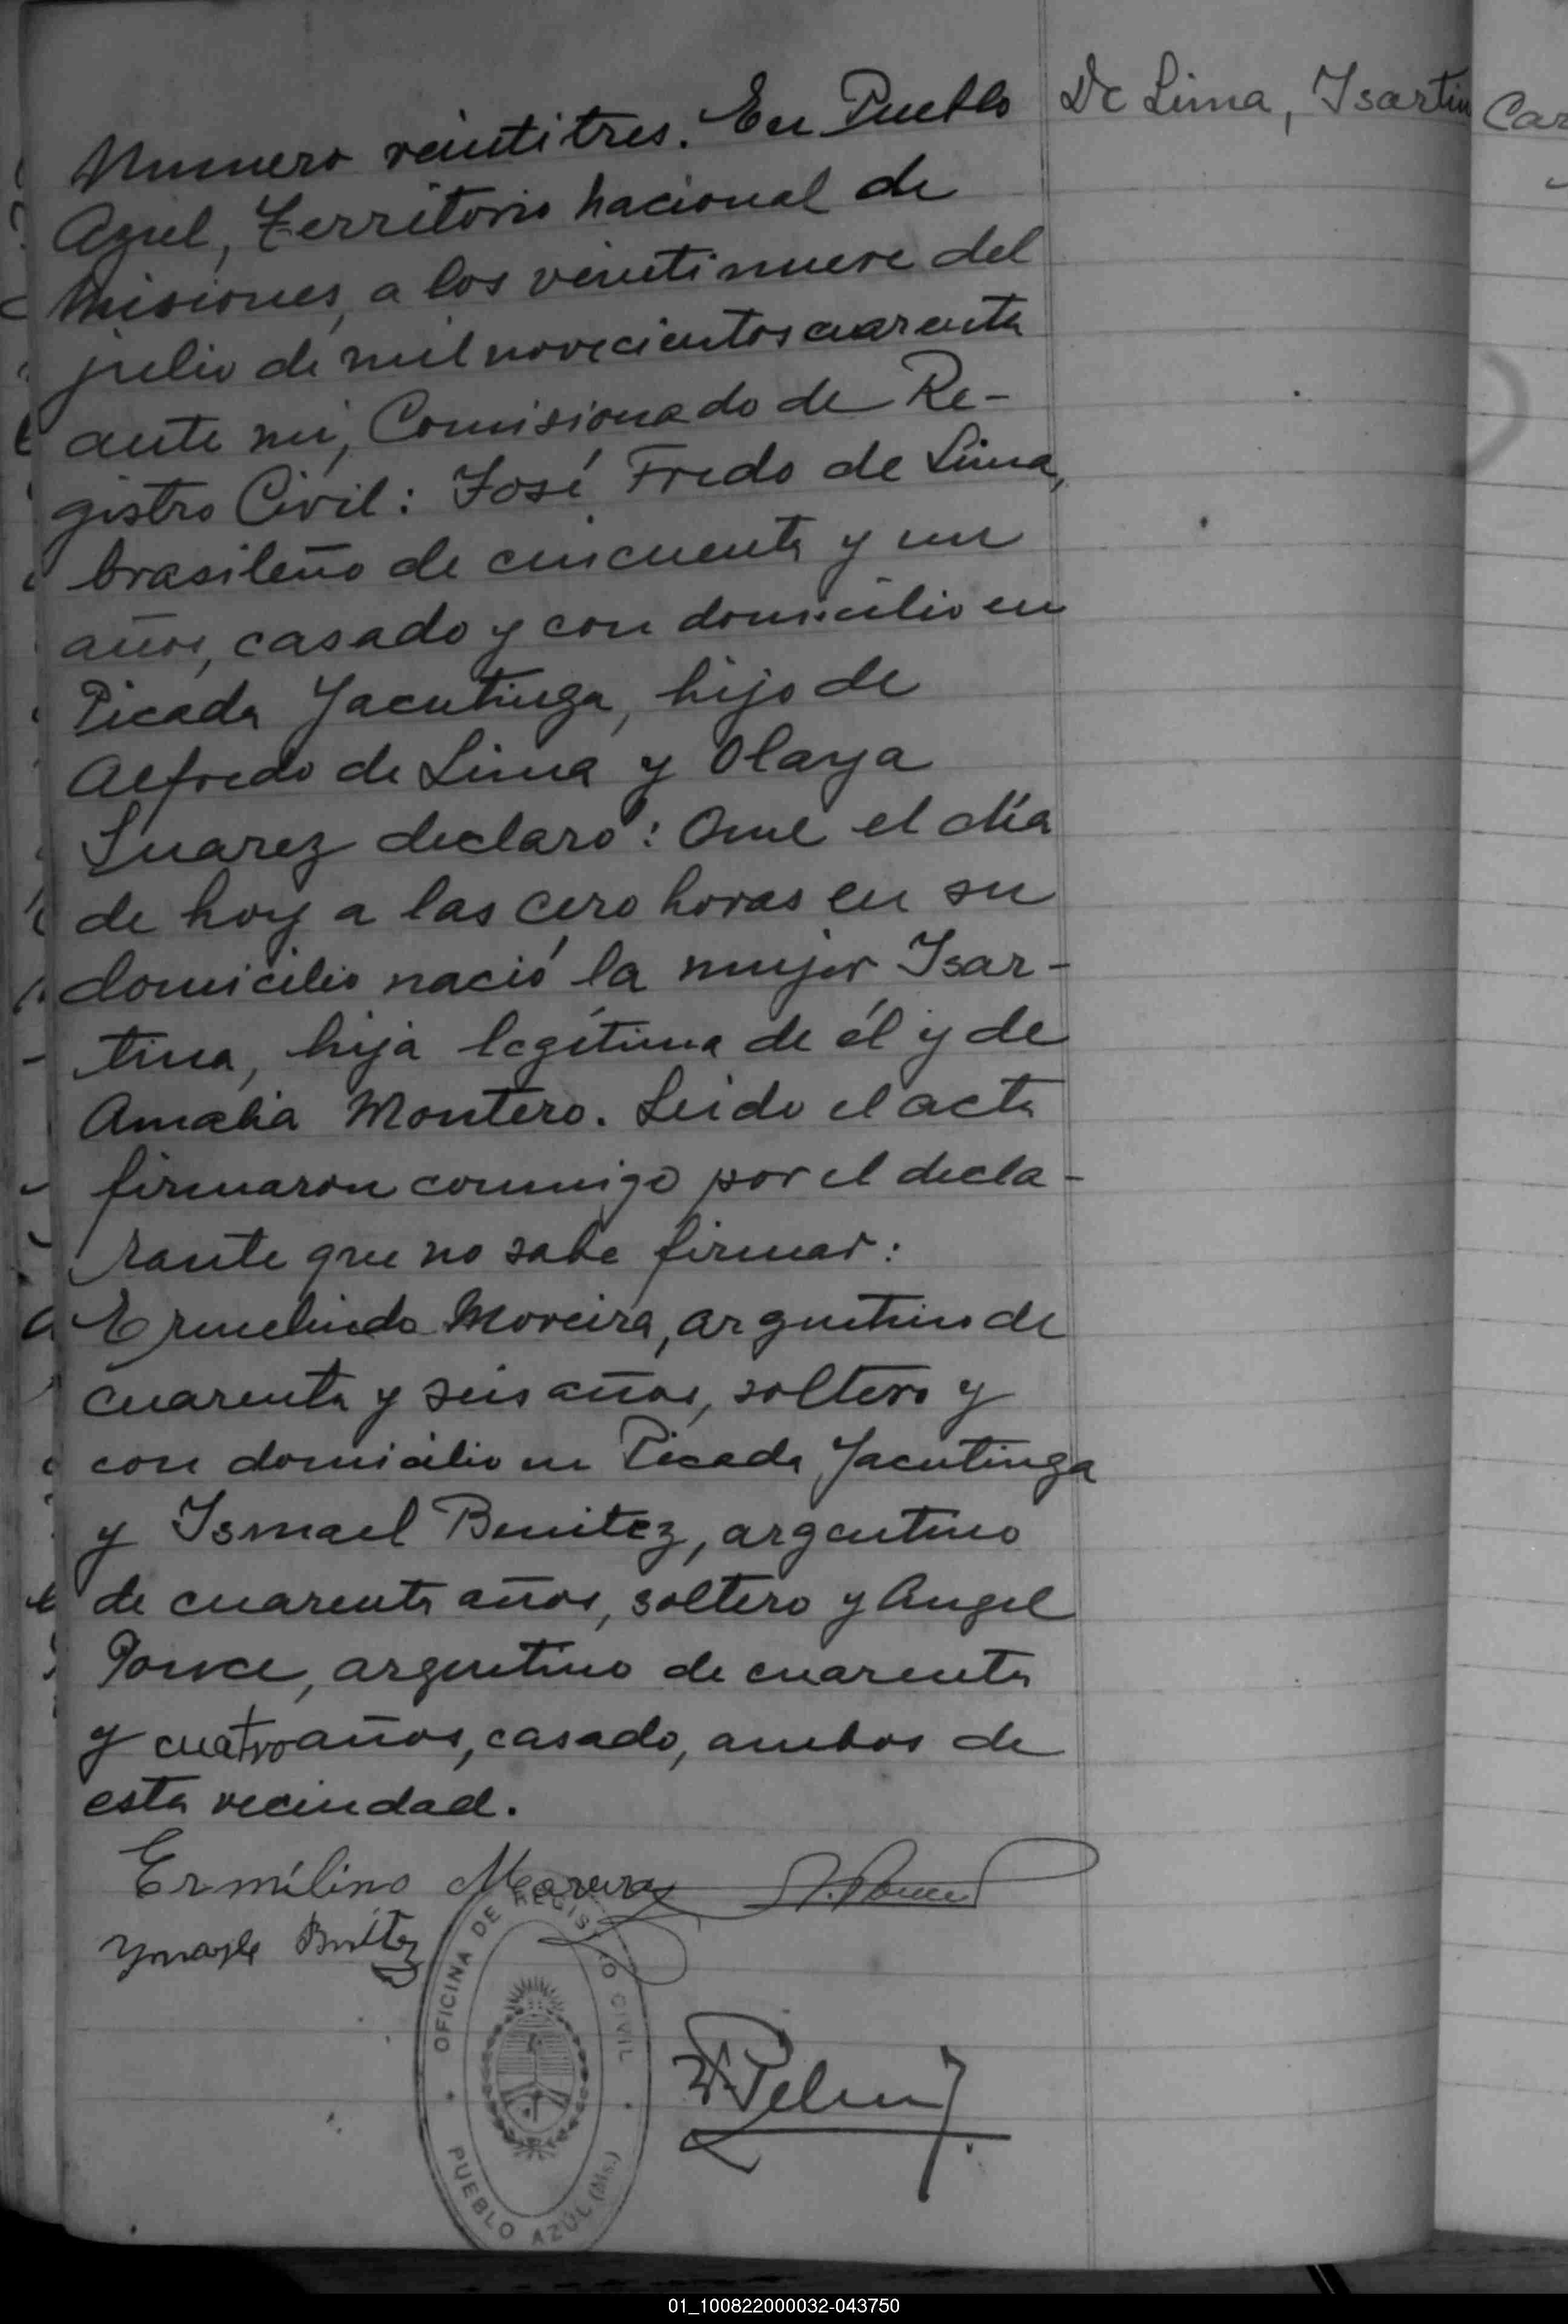 De Lima, Isartin
Numero veintitres. En Pueblo
Azul, Territorio nacional de
Misiones, a los veintinueve del
julio de mil novecientos cuarenta
ante mi, Comisionado de Re-
gistro Civil: José Fredo de Lima,
brasileño de cincuenta y un
años, casado y con domicilio en
Picada Yacutinga, hijo de
Alfredo de Lima y Olaya
Suarez declaró: Que el día
de hoy a las cero horas en su
domicilio nació la mujer Isar-
tina, hija legítima de él y de
Amalia Montero. Leido el acta
firmaron conmigo por el decla-
rante que no sabe firmar:
Ermelindo Moreira, argentino de
cuarenta y seis años, soltero y
con domicilio en Picada Yacutinga
y Ismael Benitez, argentino
de cuarenta años, soltero y Angel
Ponce, argentino de cuarenta
y cuatro años, casado, ambos de
esta vecindad.
Ermílino Moreira
OFICINA DE REGISTRO CIVIL
PUEBLO AZUL (Ms.)
Car
01_100822000032-043750